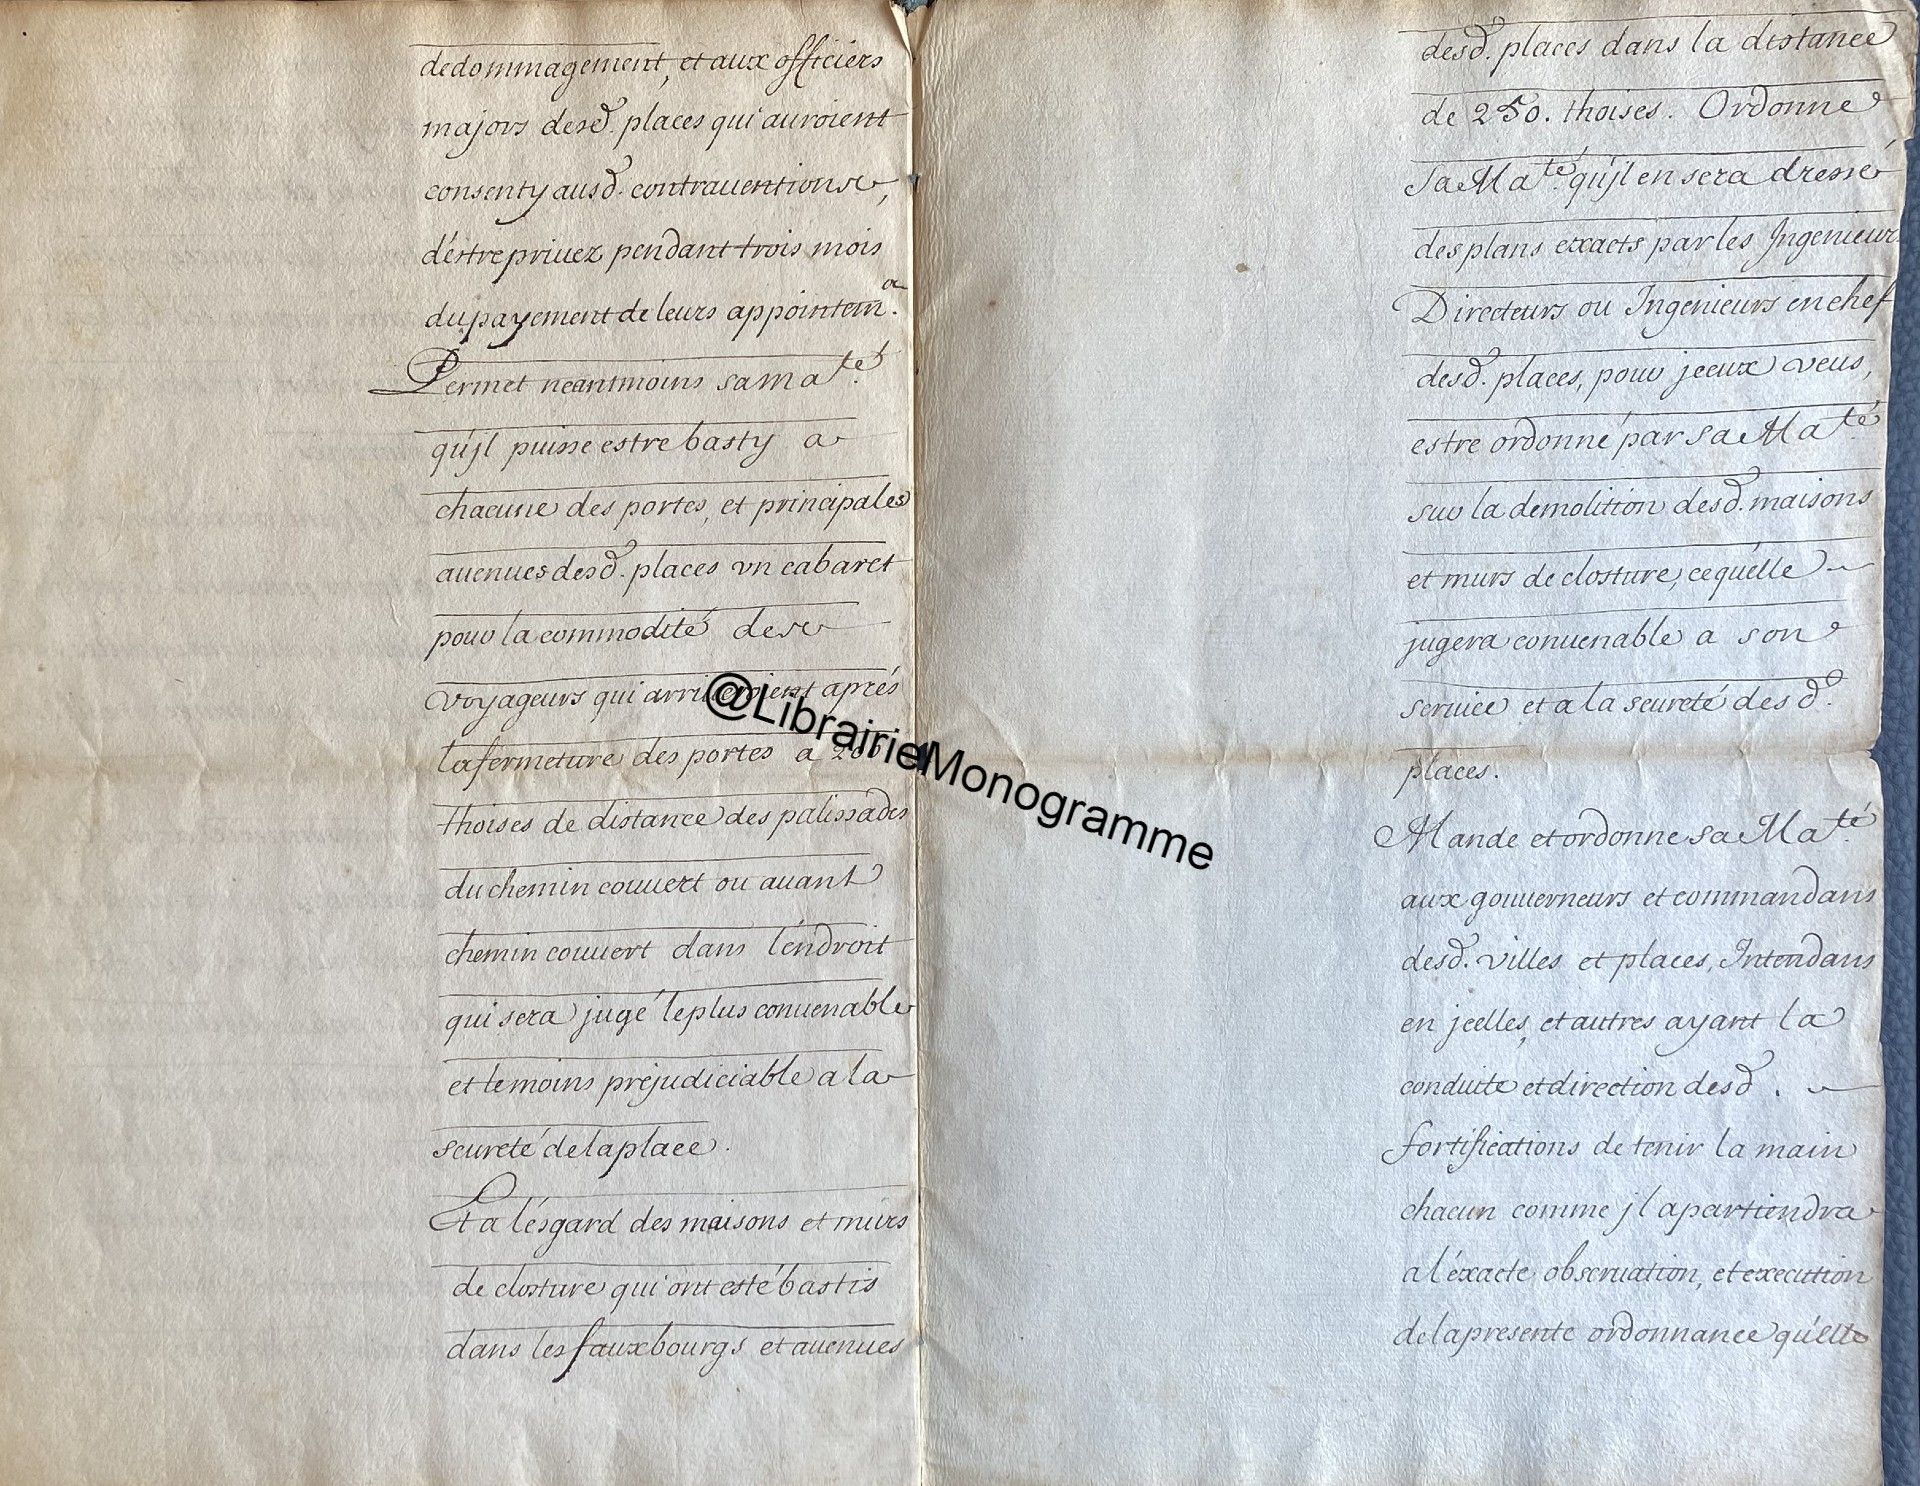 dedommagement, et aux officiers
majors desd. places qui auroient
consenty ausd. contrauentions,
d'éstre priuez pendant trois mois
du payement de leurs appointem.
Permet neantmoins sa ma.té
qu'jl puisse estre basty a
chacune des portes, et principales
auenues desd. places vn cabaret
pour la commodité des
voyageurs qui arriueroient aprés
la fermeture des portes a 200
thoises de distance des palissades
du chemin couuert ou auant
chemin couuert dans l'éndroit
qui sera jugé le plus conuenable
et le moins préjudiciable a la
seureté de la place.
Et a l'ésgard des maisons et murs
de closture qui ont esté bastis
dans les fauxbourgs et auenues
@LibrairieLMonogramme
desd. places dans la distance
de 250. thoises. Ordonne
Sa Ma.té qu'jl en sera dressé
des plans exacts par les Ingenieurs
Directeurs ou Ingenieurs en chef
desd. places, pour jceux veus,
estre ordonné par Sa Ma.té
sur la demolition desd. maisons
et murs de closture, ce qu'elle
jugera conuenable a son
seruice et a la seureté des d.
places.
Mande et ordonne Sa Ma.té
aux gouuerneurs et commandans
desd. villes et places, Intendans
en jcelles, et autres ayant la
conduite et direction desd.
fortifications de tenir la main
chacun comme jl apartiendra
a l'éxacte obseruation, et execution
de la presente ordonnance qu'elle